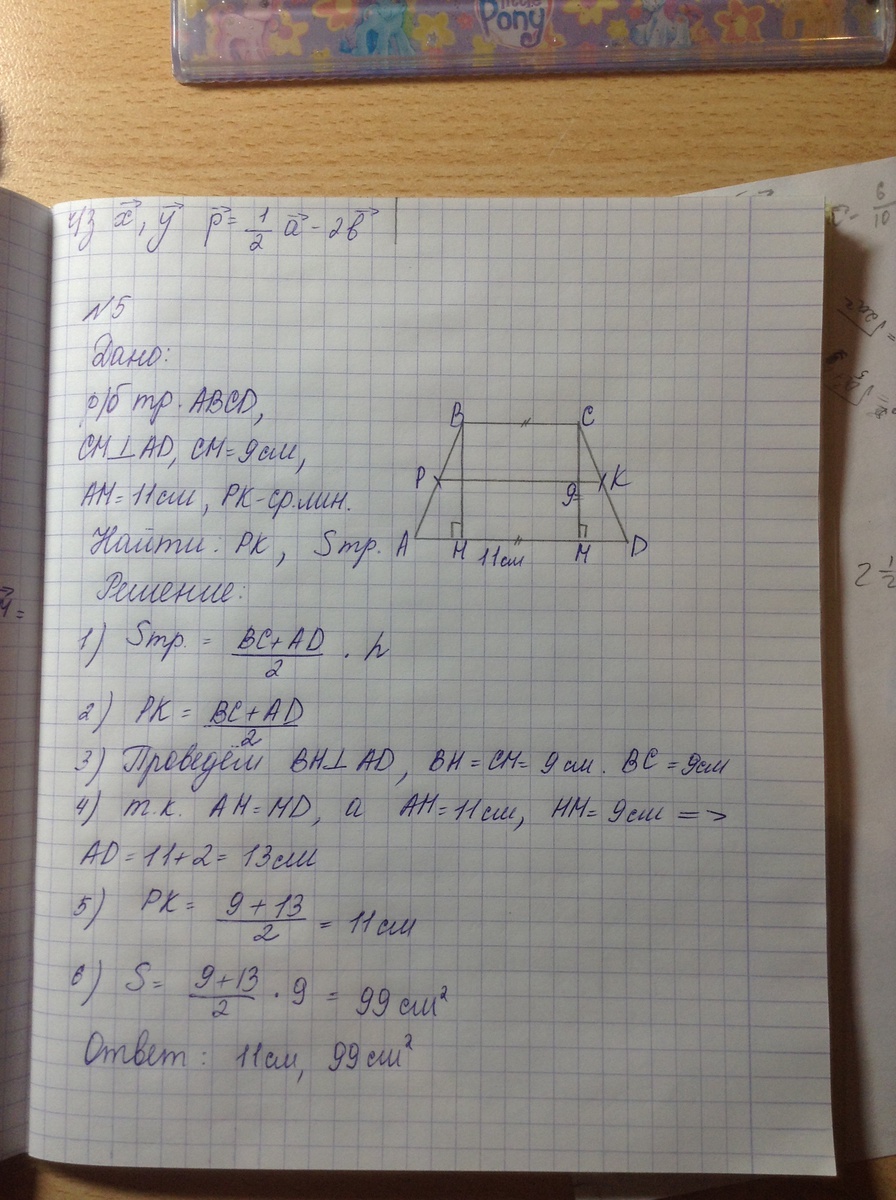 Pony
ч/з x⃗, y⃗ p⃗ = 1/2 a⃗ - 2b⃗
N5
Дано:
р/б тр. ABCD,
CM⊥AD, CM=9см,
AM=11см, PK-ср.лин.
Найти: PK, Sтр.
B C
P K
9
A H M D
11см
Решение:
1) Sтр. = (BC+AD)/2 · h
2) PK = (BC+AD)/2
3) Проведём BH⊥AD, BH=CM=9см. BC=9см
4) т.к. AH=MD, а AM=11см, HM=9см =>
AD=11+2=13см
5) PK = (9+13)/2 = 11см
6) S = (9+13)/2 · 9 = 99см²
Ответ: 11см, 99см²
6/10
2 1/2